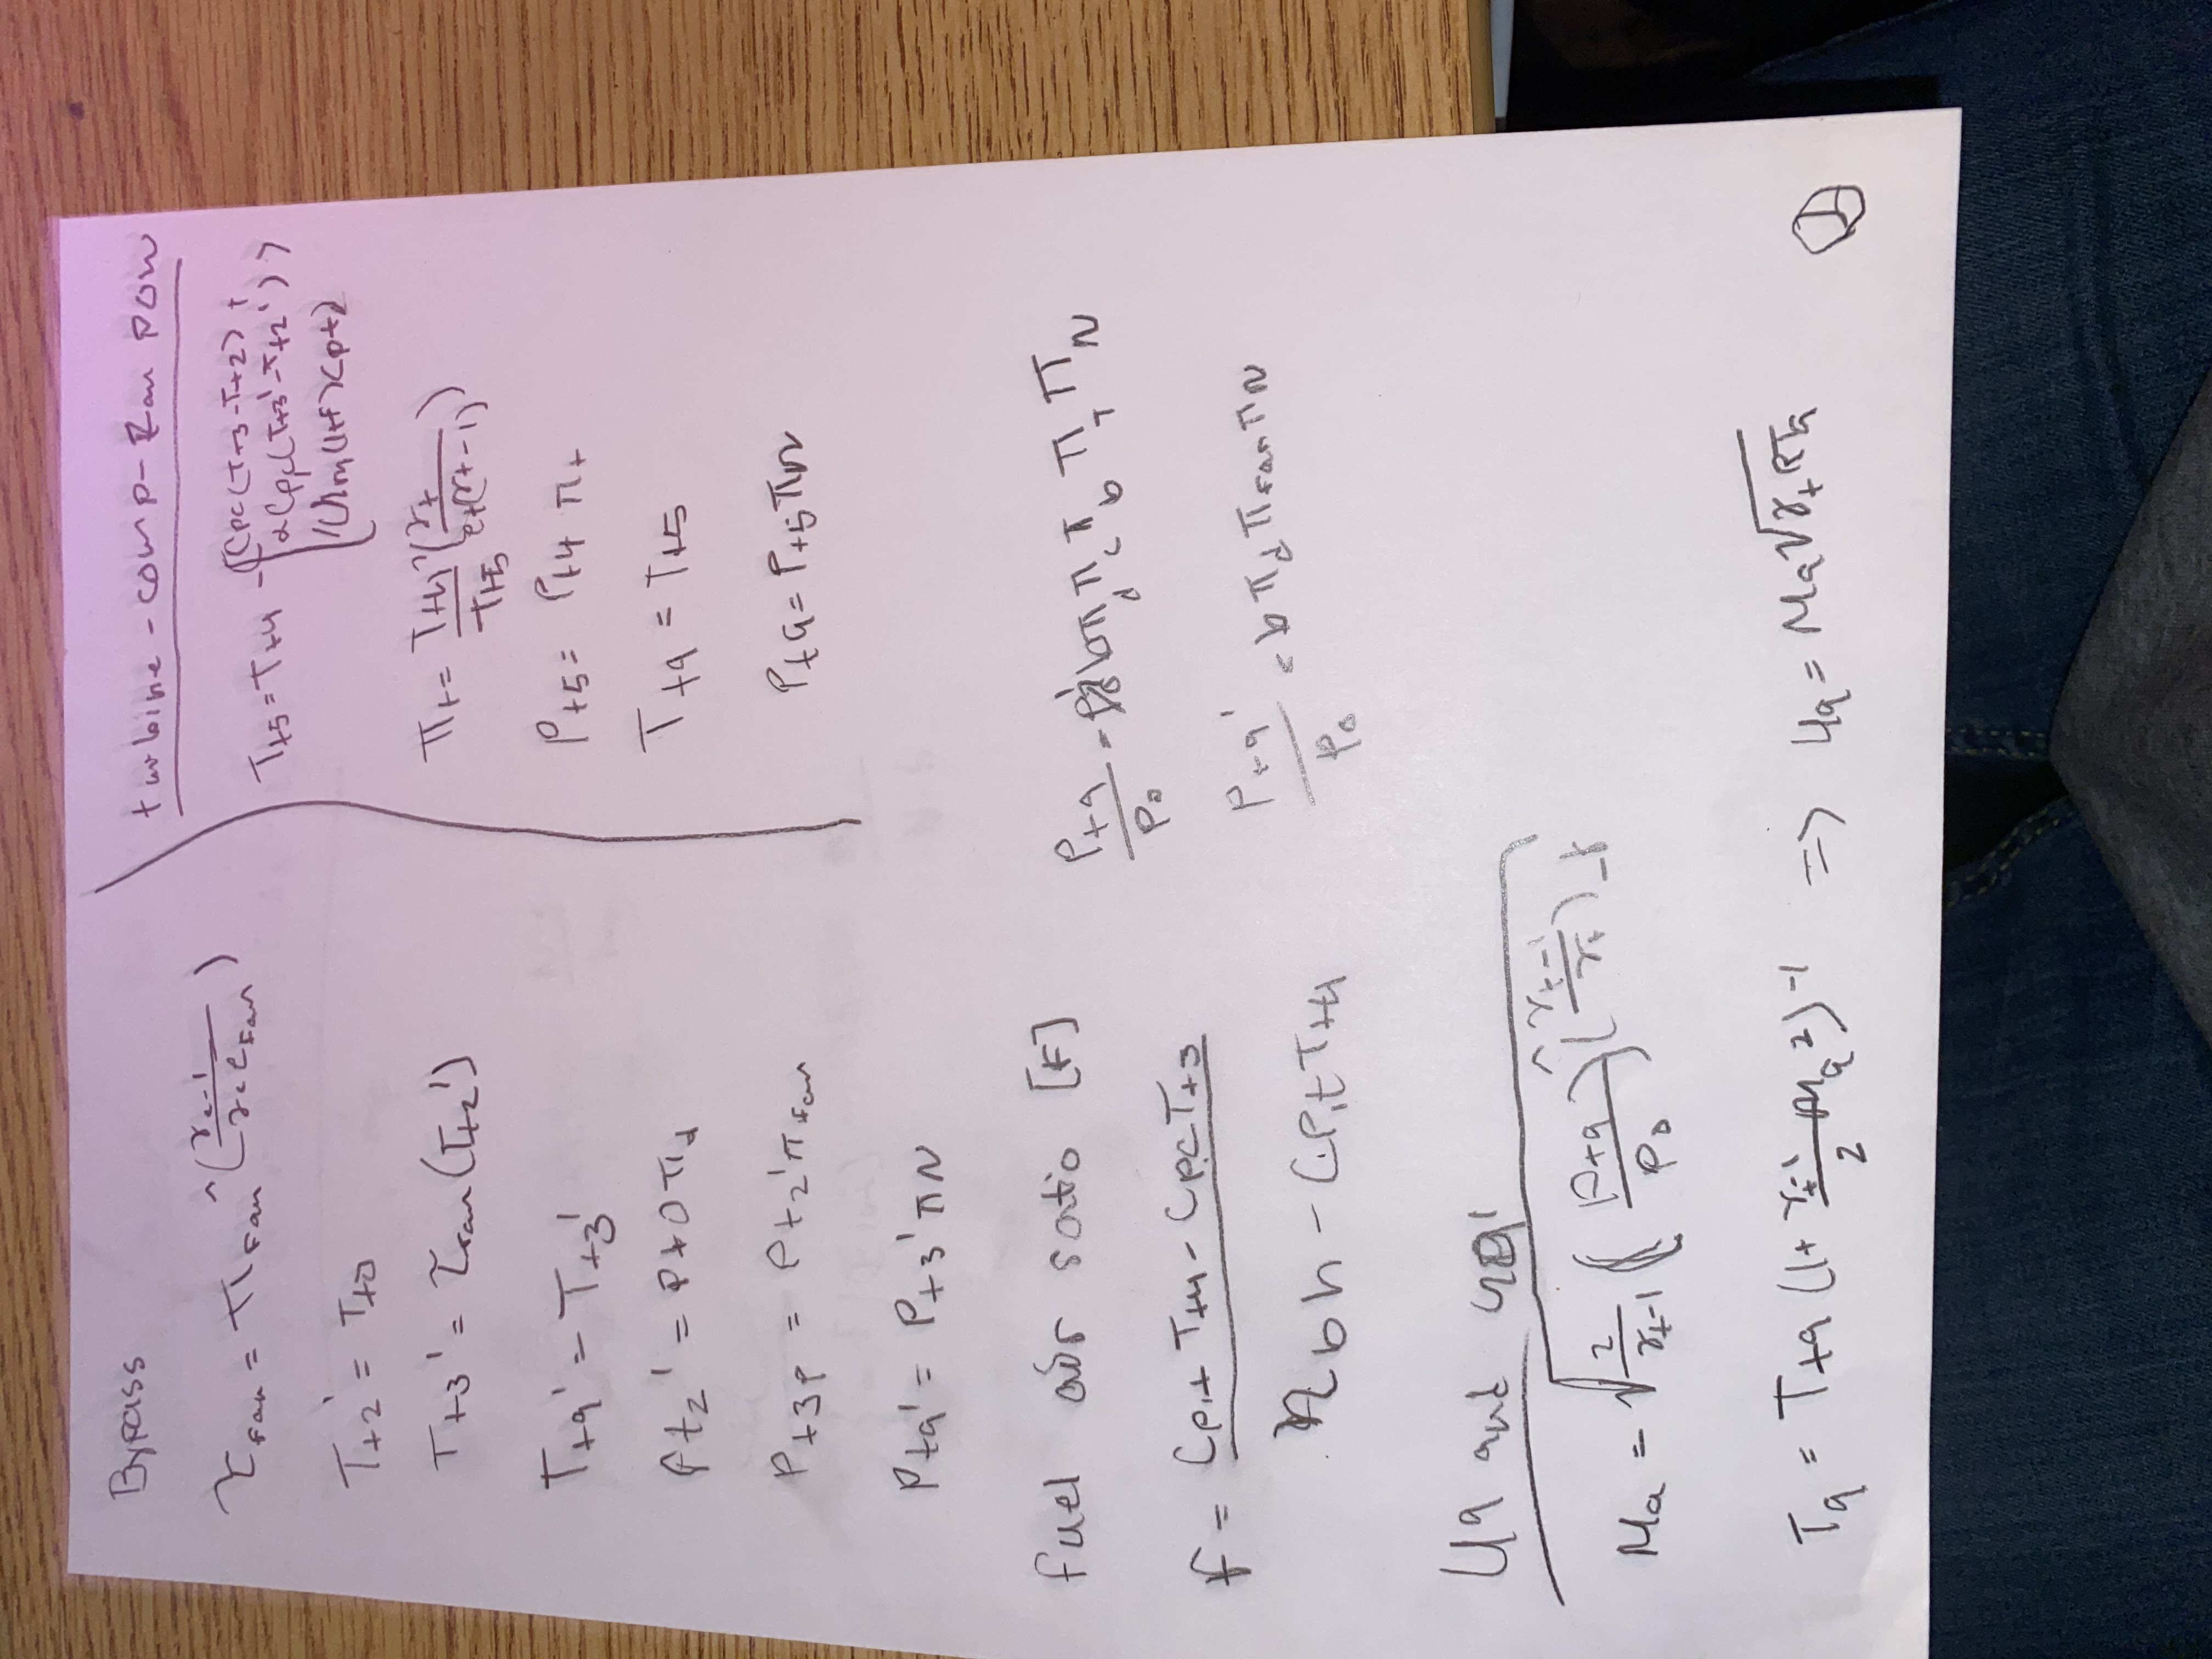 Bypass
τ_fan = π_fan ^ ((γc-1)/(γc e_fan))
T_t2' = T_t0
T_t3' = τ_fan (T_t2')
T_t9' = T_t3'
P_t2' = P_t0 π_d
P_t3p = P_t2' π_fan
P_t9' = P_t3' π_N
turbine-comp-fan pow
T_t5 = T_t4 - [Cpc(T_t3-T_t2) +
αCpc(T_t3'-T_t2'))
/(ηm(1+f)Cpt)
π_t = T_t4/T_t5 ^(γt/(et(γt-1)))
P_t5 = P_t4 π_t
T_t9 = T_t5
P_t9 = P_t5 π_N
fuel air ratio [f]
f = (Cp,t T_t4 - Cp,c T_t3)/(η_b h - Cp,t T_t4)
P_t9/P_0 = b π_d π_c π_b π_T π_N
P_t9'/P_0 = b π_d π_fan π_N
U9 and U9'
M9 = √(2/(γt-1) ((P_t9/P_0)^((γt-1)/γt) -1
T9 = T_t9 (1+ (γt-1)/2 M9²)^-1 => U9 = M9√(γt R T9)
2